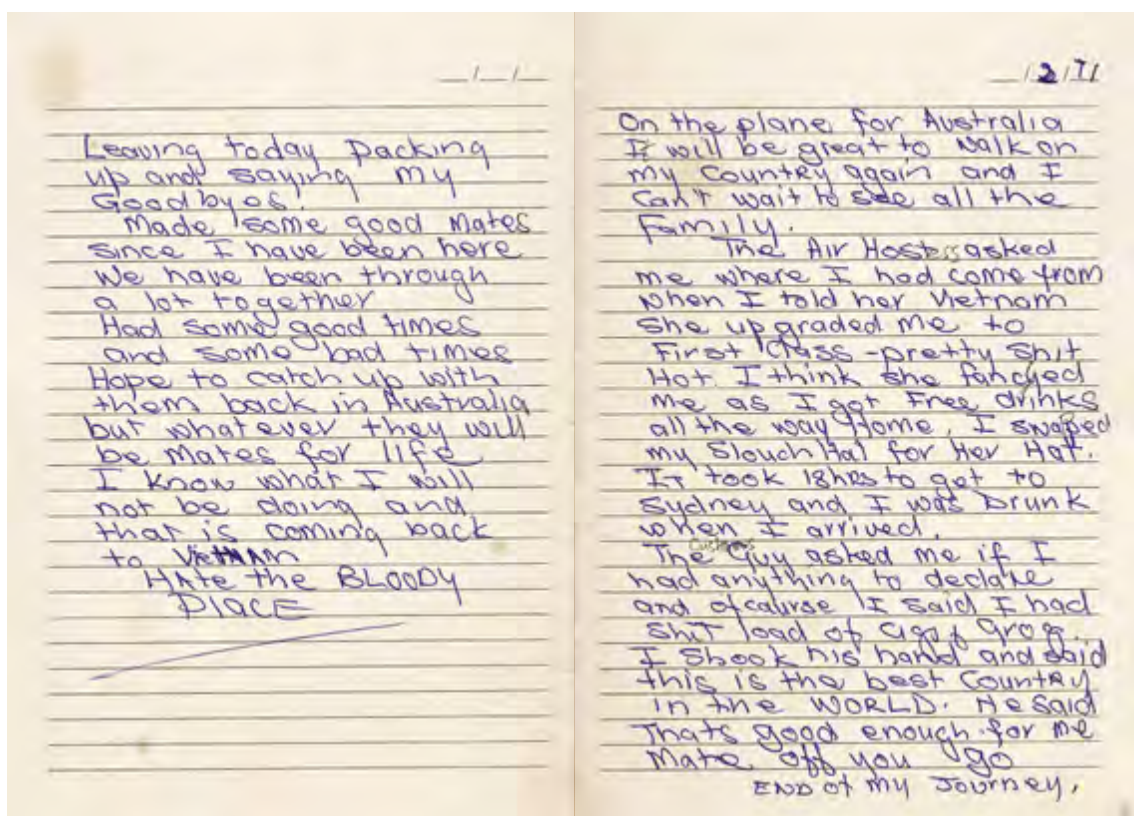 __/__/__
Leaving today packing
up and saying my
Goodbyes.
Made some good Mates
since I have been here
We have been through
a lot together
Had some good times
and some bad times
Hope to catch up with
them back in Australia
but whatever they will
be Mates for life
I know what I will
not be doing and
that is coming back
to VIETNAM
HATE the BLOODY
PLACE
__/2/71
On the plane for Australia
It will be great to walk on
my Country again and I
Can't wait to see all the
Family.
The Air Hostess asked
me where I had come from
when I told her Vietnam
She upgraded me to
First Class - pretty shit
Hot. I think she fancyed
me as I got Free drinks
all the way Home. I swaped
my Slouch Hat for Her Hat.
IT took 18hrs to get to
Sydney and I was Drunk
when I arrived.
The Customs Guy asked me if I
had anything to declare
and ofcaurse I said I had
Shit load of Cigs & Grog.
I Shook his hand and said
this is the best Country
in the WORLD. He said
Thats good enough for me
Mate off you go
END of my Journey.